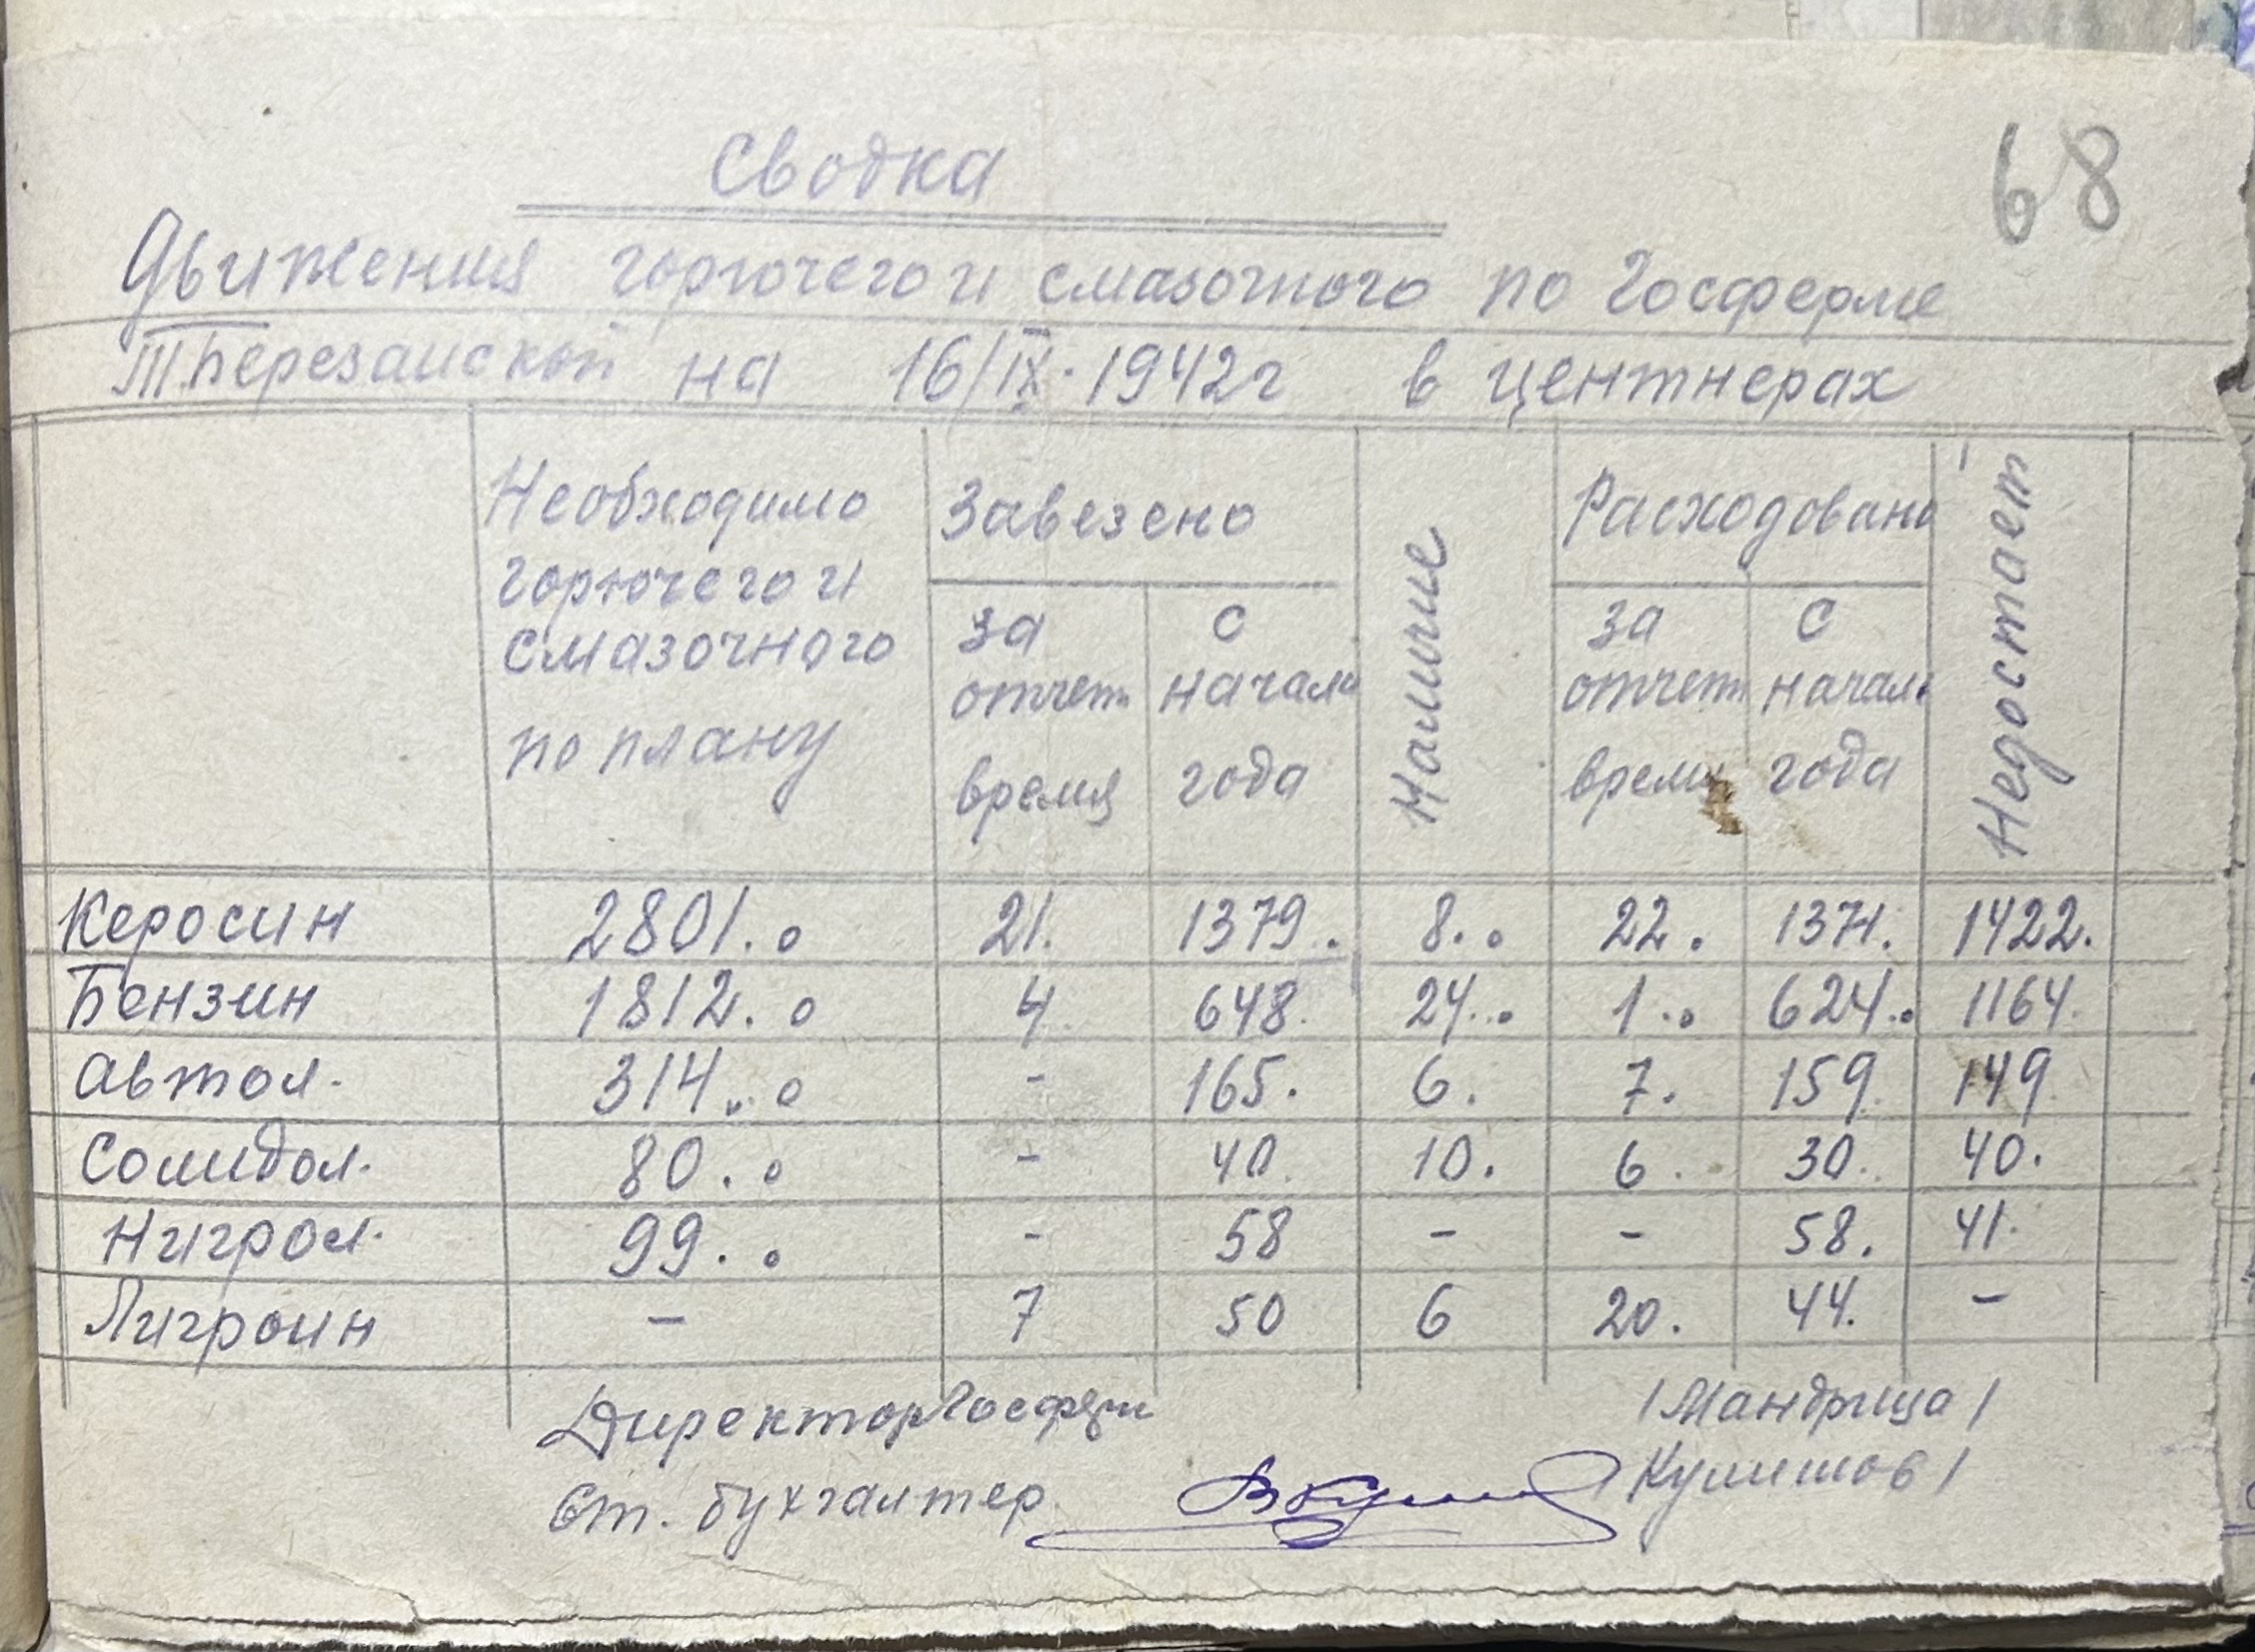 68
Сводка
Движения горючего и смазочного по Госферме
Т.Березанской на 16/IX·1942г в центнерах
Необходимо горючего и смазочного по плану
Завезено
за отчетн время
с начала года
Наличие
Расходовано
за отчетн время
с начала года
Недостает
Керосин 2801.0 21. 1379. 8.0 22. 1371. 1422.
Бензин 1812.0 4 648. 24.0 1.0 624.0 1164.
Автол. 314.0 - 165. 6. 7. 159. 149
Солидол. 80.0 - 40. 10. 6. 30. 40.
Нигрол. 99.0 - 58 - - 58. 41.
Лигроин - 7 50 6 20. 44. -
Директор Госферм /Мандрица/
Ст. бухгалтер /Кулишов/